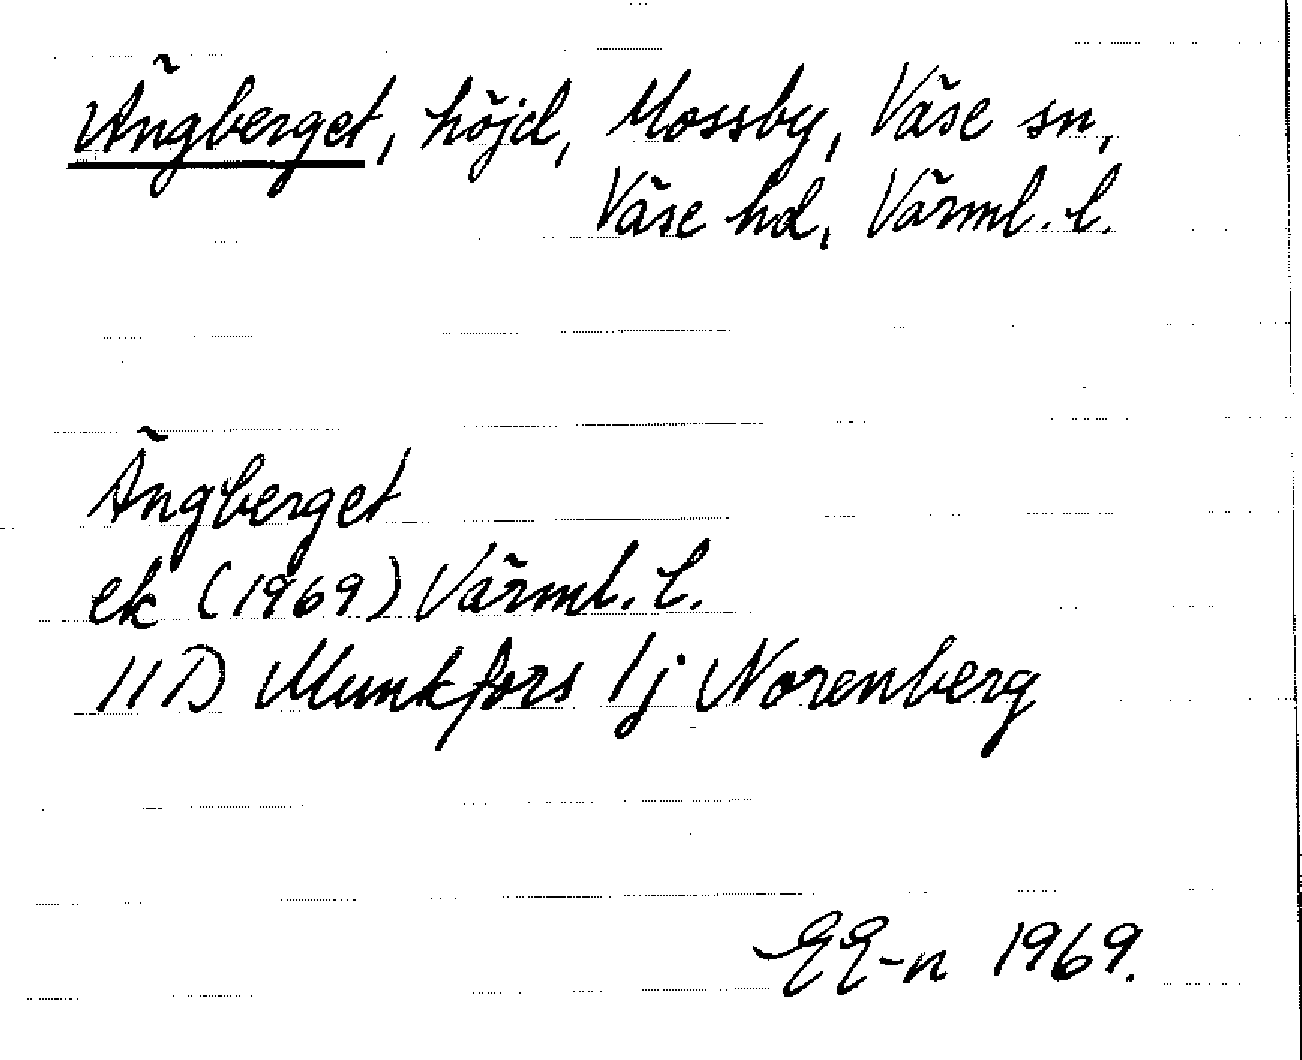 Ängberget, höjd, Mossby, Väse sn,
Väse hd, Värml. l.
Ängberget
ek (1969) Värml. l.
11 D Munkfors 1j Norenberg
EE-n 1969.